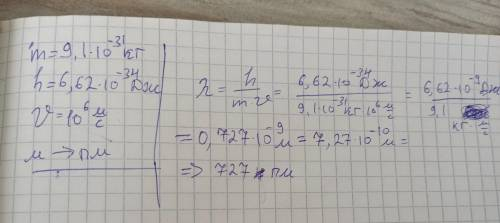 m = 9,1·10⁻³¹ кг
h = 6,62·10⁻³⁴ Дж
V = 10⁶ м/с
м → пм
λ = h/(m v) = (6,62·10⁻³⁴ Дж)/(9,1·10⁻³¹ кг 10⁶ м/с) = (6,62·10⁻⁹ Дж)/(9,1 кг м/с)
= 0,727·10⁻⁹ м = 7,27·10⁻¹⁰ м =
=> 727 пм